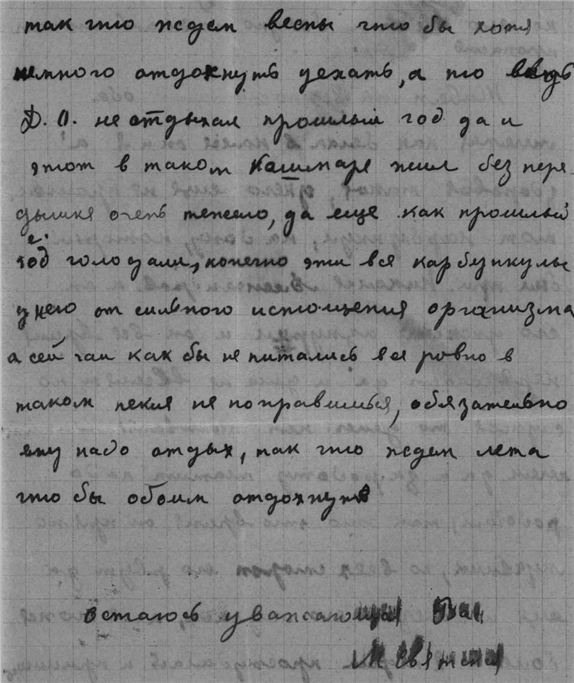 так что ждем весны что бы хотя
немного отдохнуть уехать, а то ведь
Д. О. не отдыхал прошлый год да и
этот в таком кашмаре жил без пере
дышке очень тежело, да еще как прошлый
год голодали, конечно эти вся карбункулы
у него от сильного истощения организма
а сей час как бы не питались все ровно в
таком пекле не поправишься, обязательно
ему надо отдых, так что ждем лета
что бы обоим отдохнуть
Остаюсь уважающая Вас
М